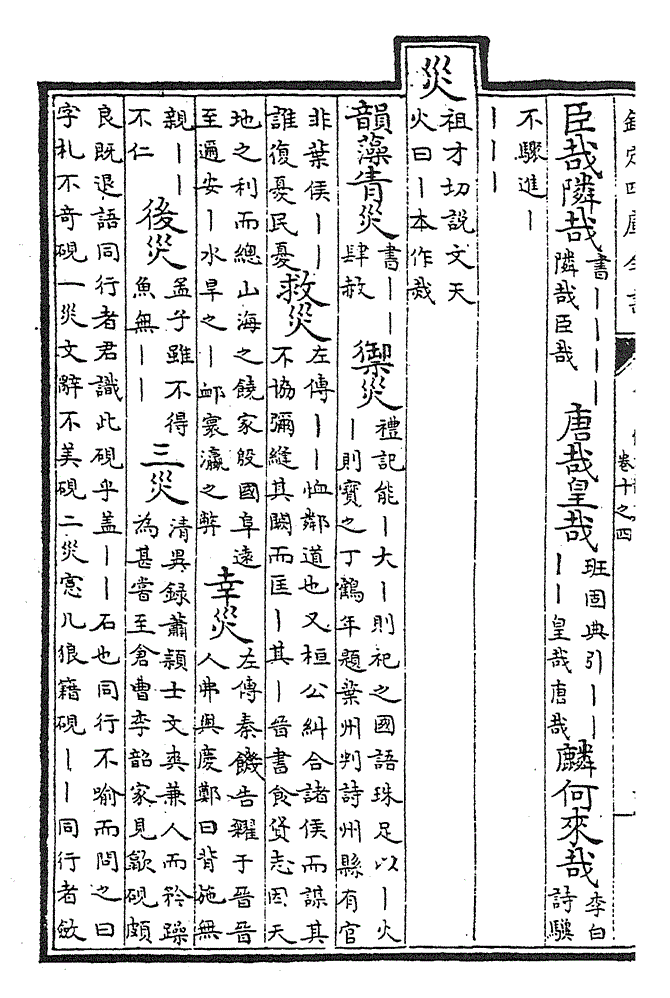 欽定四庫全書
卷十之四
臣哉隣哉
書丨丨丨丨
隣哉臣哉
唐哉皇哉
班固典引丨丨
丨丨皇哉唐哉
麟何來哉
李白
詩驥
不驟進丨
丨丨丨
災
祖才切説文天
火曰丨本作烖
韻藻眚災
書丨丨
肆赦
禦災
禮記能丨大丨則祀之國語珠足以丨火
丨則寳之丁鶴年題葉州判詩州縣有官
非葉侯丨丨
誰復憂民憂
救災
左傳丨丨恤鄰道也又桓公糾合諸侯而謀其
不協彌縫其闕而匡丨其丨晉書食貨志因天
地之利而總山海之饒家殷國阜遠
至邇安丨水旱之丨卹寰瀛之弊
幸災
左傳秦饑告糴于晉晉
人弗與慶鄭曰背施無
親丨丨
不仁
後災
孟子雖不得
魚無丨丨
三災
清異録蕭穎士文爽兼人而矜躁
為甚嘗至倉曹李韶家見歙硯頗
良既退語同行者君識此硯乎盖丨丨石也同行不喻而問之曰
字札不奇硯一災文辭不美硯二災窻几狼籍硯丨丨同行者斂